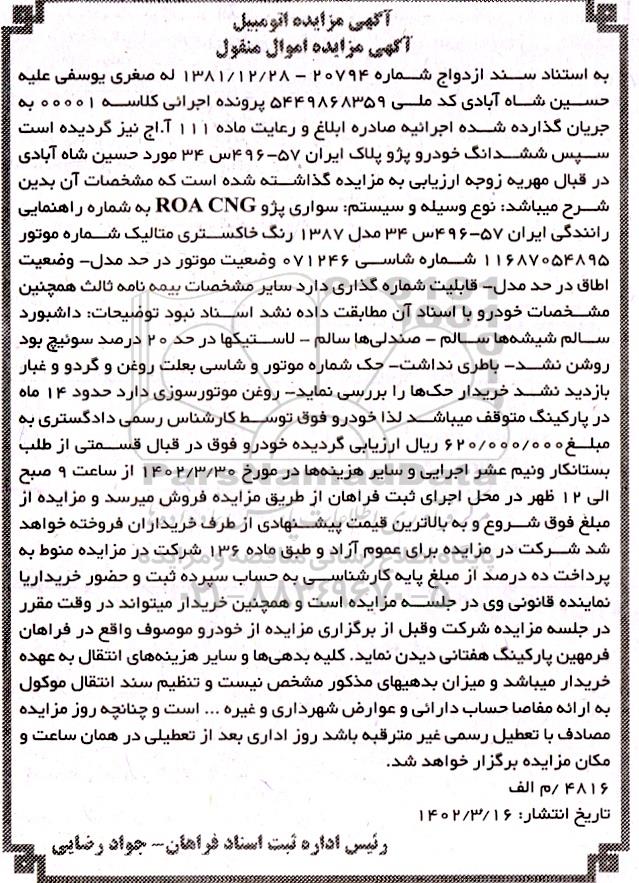 آگهی مزایده اتومبیل
آگهی مزایده اموال منقول
به استناد سند ازدواج شماره ۲۰۷۹۴ - ۱۳۸۱/۱۲/۲۸ له صغری یوسفی علیه
حسین شاه آبادی کد ملی ۵۴۴۹۸۶۸۳۵۹ پرونده اجرائی کلاسه ۰۰۰۰۱ به
جریان گذارده شده اجرائیه صادره ابلاغ و رعایت ماده ۱۱۱ آ.اج نیز گردیده است
سپس ششدانگ خودرو پژو پلاک ایران ۵۷-۴۹۶س ۳۴ مورد حسین شاه آبادی
در قبال مهریه زوجه ارزیابی به مزایده گذاشته شده است که مشخصات آن بدین
شرح میباشد: نوع وسیله و سیستم: سواری پژو ROA CNG به شماره راهنمایی
رانندگی ایران ۵۷-۴۹۶س ۳۴ مدل ۱۳۸۷ رنگ خاکستری متالیک شماره موتور
۱۱۶۸۷۰۵۴۸۹۵ شماره شاسی ۰۷۱۲۴۶ وضعیت موتور در حد مدل- وضعیت
اطاق در حد مدل- قابلیت شماره گذاری دارد سایر مشخصات بیمه نامه ثالث همچنین
مشخصات خودرو با اسناد آن مطابقت داده نشد اسناد نبود توضیحات: داشبورد
سالم شیشه‌ها سالم - صندلی‌ها سالم - لاستیکها در حد ۲۰ درصد سوئیچ بود
روشن نشد- باطری نداشت- حک شماره موتور و شاسی بعلت روغن و گردو و غبار
بازدید نشد خریدار حک‌ها را بررسی نماید- روغن موتورسوزی دارد حدود ۱۴ ماه
در پارکینگ متوقف میباشد لذا خودرو فوق توسط کارشناس رسمی دادگستری به
مبلغ ۶۲۰/۰۰۰/۰۰۰ ریال ارزیابی گردیده خودرو فوق در قبال قسمتی از طلب
بستانکار ونیم عشر اجرایی و سایر هزینه‌ها در مورخ ۱۴۰۲/۳/۳۰ از ساعت ۹ صبح
الی ۱۲ ظهر در محل اجرای ثبت فراهان از طریق مزایده فروش میرسد و مزایده از
مبلغ فوق شروع و به بالاترین قیمت پیشنهادی از طرف خریداران فروخته خواهد
شد شرکت در مزایده برای عموم آزاد و طبق ماده ۱۳۶ شرکت در مزایده منوط به
پرداخت ده درصد از مبلغ پایه کارشناسی به حساب سپرده ثبت و حضور خریداریا
نماینده قانونی وی در جلسه مزایده است و همچنین خریدار میتواند در وقت مقرر
در جلسه مزایده شرکت وقبل از برگزاری مزایده از خودرو موصوف واقع در فراهان
فرمهین پارکینگ هفتانی دیدن نماید. کلیه بدهی‌ها و سایر هزینه‌های انتقال به عهده
خریدار میباشد و میزان بدهیهای مذکور مشخص نیست و تنظیم سند انتقال موکول
به ارائه مفاصا حساب دارائی و عوارض شهرداری و غیره ... است و چنانچه روز مزایده
مصادف با تعطیل رسمی غیر مترقبه باشد روز اداری بعد از تعطیلی در همان ساعت و
مکان مزایده برگزار خواهد شد.
۴۸۱۶ /م الف
تاریخ انتشار: ۱۴۰۲/۳/۱۶
رئیس اداره ثبت اسناد فراهان- جواد رضایی
ParsNamadData
پایگاه اطلاع رسانی مناقصه و مزایده
۰۲۱-۸۸۳۴۹۶۷۰-۵